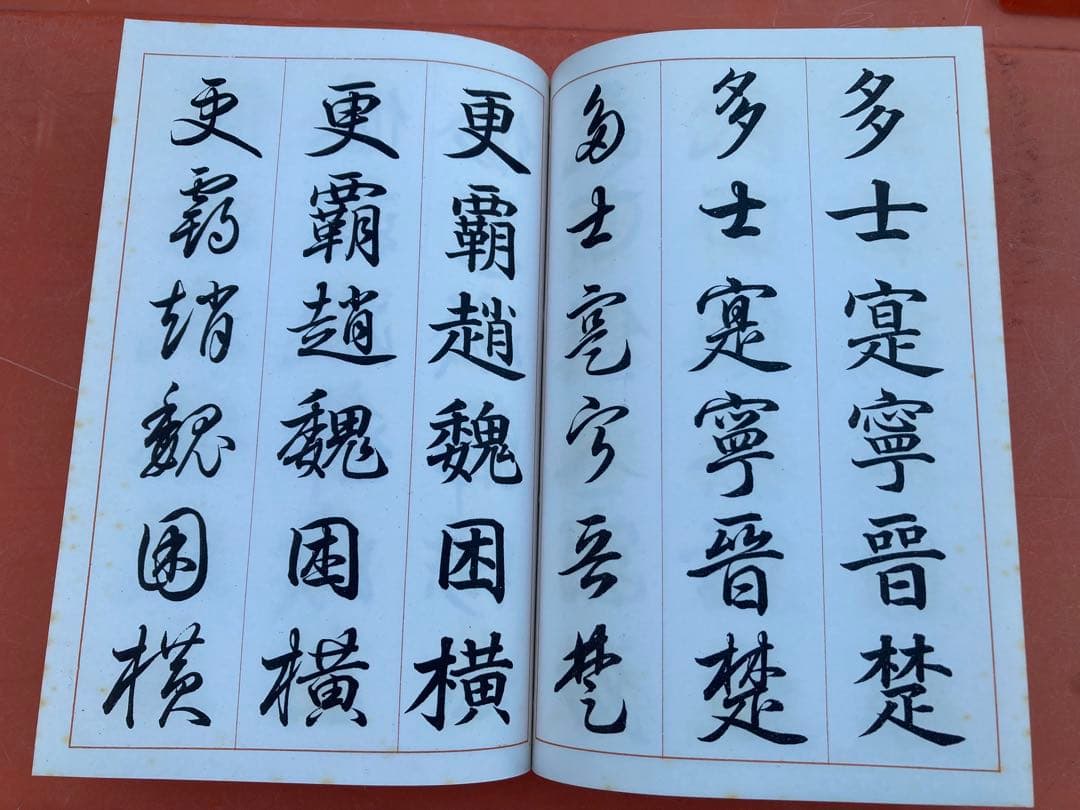 多士寔寧晉楚
多士寔寧晉楚
多士寔寧晉楚
更霸趙魏困橫
更霸趙魏困橫
更霸趙魏困橫